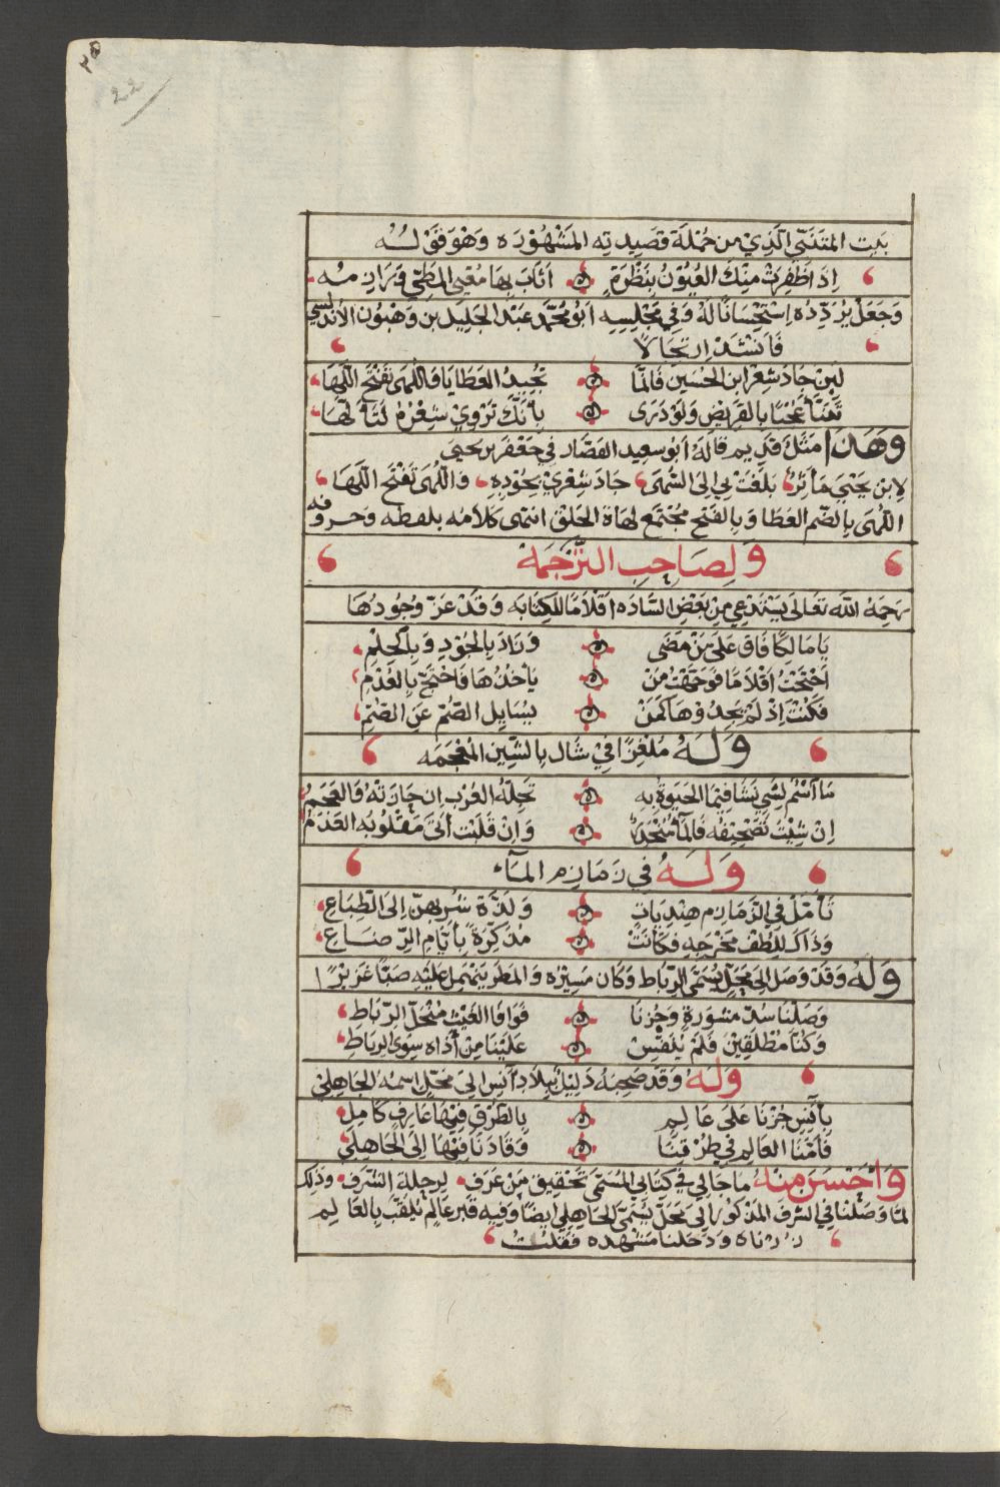 ٣٥
22
بَيت المتَنَبّي الَّذِيْ من جُمْلَة قَصِيدتِه المَشْهُوْرَه وَهْوَ قَوْلُه
إذَا ظَفِرَتْ مِنْكَ العُيُوْنُ بِنَظْرَةٍ اثَابَ بهَا مُعْيي المَطِيّ وَرَازِمُه
وَجَعَلَ يُرَدِّدُه اِسْتِحْسَانًا لَهُ وَفِي مَجْلِسِهِ ابُو مُحَمَّد عَبْد الجَلِيْل بن وَهْبُون الأندَلُسِي
فَانْشَدَ ارتجَالًا
لئِن جَادَ شِعْرُ ابن الحُسَين فَانَّمَا تُجِيدُ العَطايَا وَاللُّهَى تَفْتَحُ اللَّهَا
تَنَبَّأَ عُجْبًا بالقَرِيْضِ وَلَوْ دَرَى بِأنَّكَ تَرْوِيْ شِعْرَهُ لَتَألَّهَا
وَهَذا مَثَلٌ قَدِيم قالَهُ ابُو سعِيد القصَّار في جَعْفَر بن يحيى
لإبن يَحْيَى مَأثرٌ بلَغَتْ بي إلى السُّهَى جَادَ شِعْرِيْ بِجُوْدِهِ وَاللُّهَى تَفْتَح اللَّهَا
اللُّهَى بالضّم العَطَا وَبالفَتح مُجْتَمَع لهَاة الحَلْق انتهَى كَلَامُه بلَفظِه وَحروفه
وَلِصَاحِب التَّرْجَمَة
رَحِمَهُ اللَّه تعَالَى يَسْتَدْعِي مِنْ بَعْضِ السَّادَه اقْلَامًا للكِتَابَه وَقَدْ عَزَّ وُجُودُهَا
يَا مَالِكًا فَاقَ عَلَى مَنْ مَضَى وَزَادَ بالجُوْدِ وَبالحِلْمِ
احْتَجْتُ اقْلَامًا فَوَجَّهْتُ مَنْ يَأخُذُهَا فَاحْتَجَّ بالعُدْمِ
فَكُنْتُ إذْ لَمْ يجِدُوهَا كَمَنْ يُسَايِل الصُّمَّ عَنِ الصُّمِّ
وَلَهُ مُلْغِزًا فِيْ شَال بالشِّين المُعْجَمَه
مَا اسْمٌ لشَيٍ نَشَا فِيْهَا الحَيَوةُ بهِ تُجِلّهُ العُرْبُ ان جَازَتْهُ وَالعَجَمُ
انْ شِئْتَ تَصْحِيْفَهُ فَالمَأ وَانْ قَلَبْتَ اتَى مَقْلُوْبُه العَدَمُ
وَلَهُ في زَمَازِم المَآء
تَأمَّلْ فِي الزَّمَازِم هِنْدِيَاتٍ وَلَذّة شُرْبِهِنّ إلَى الطِّبَاعِ
وَذَاكَ لِلُطْفِ مَخْرَجِهِ فَكَانَتْ مُذَكِّرَةً بأيَّامِ الرّضَاعِ
وَلَهُ وَقَدْ وَصَلَ إلَى مَحَلّ يُسَمّى الرِّبَاط وَكَانَ مَسِيْرُه وَالمَطَر يَنْهَمِل عَلَيْهِ صَبًّا غَزِيْرًا
وَصَلْنَا سُدّ مَشْوَرَةٍ وَجُزْنَا فَوَافَا الغَيْث مُنْحَلّ الرِّبَاطِ
وَكُنَّا مُطْلَقِيْن فَلَمْ يُنَفِّسْ عَلَيْنَا مِنْ أذَاه سِوَى الرِّبَاطِ
وَلَهُ وَقَد صَحِبَهُ دَلِيْل بِبلَاد آنِس إلَى مَحَلّ اسمُهُ الجَاهِلِيْ
بِأنِس جُزْنَا عَلَى عَالِمٍ بِالطُّرْقِ فِيْهَا عَارِفٍ كَامِلِ
فَأمَّنَا العَالِم في طُرْقِنَا وَقَادَنَا فِيْهَا إلَى الجَاهِلِيْ
وَاَحْسَن مِنْهُ مَا جَا لِي في كِتَابي المُسَمَّى تَحْقِيْق مَنْ عَرَف لِرِحْلَةِ الشَّرَف وَذلِكَ
لمَّا وَصَلْنَا في الشّرف المَذْكُور إلى مَحَلّ يُسَمّى الجَاهِلي ايضًا وَفيه قَبْر عَالِم يُلَقَّبُ بالعَالِم
زرناه وَدَخَلنا مَشْهَدَه فَقُلتُ